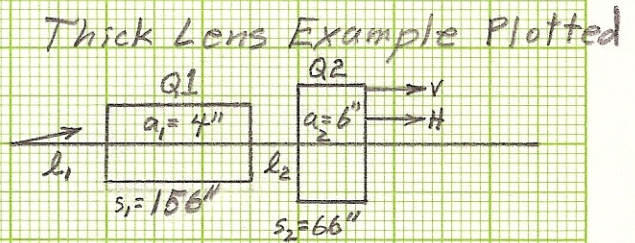 Thick Lens Example Plotted
Q1
Q2
V
a₁= 4"
a₂= 6"
H
l₁
l₂
s₁= 156"
s₂=66"